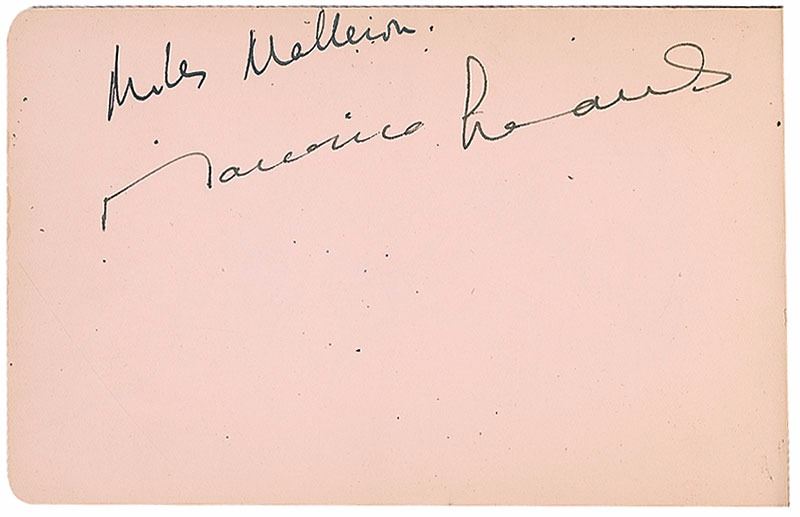 Miles Malleson.
Maurice